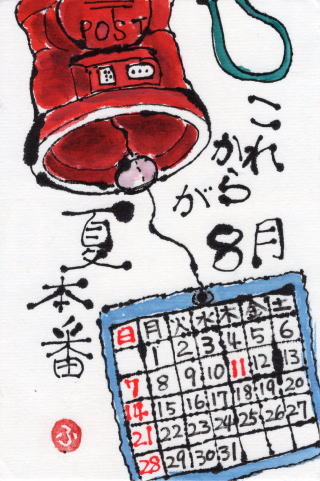 〒
POST
これ
から
が
8月
夏本番
日 月 火 水 木 金 土
1 2 3 4 5 6
7 8 9 10 11 12 13
14 15 16 17 18 19 20
21 22 23 24 25 26 27
28 29 30 31
ふ